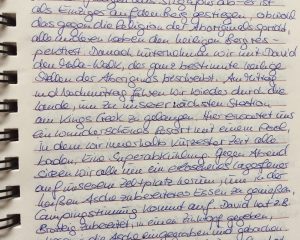 als Einziger auf den Berg gestiegen, obwohl
das gegen die Religion der Aboriginals spricht,
alle anderen haben den heiligen Berg res-
pektiert. Danach unternehmen wir mit David
den Mala-Walk, der ganz bestimmte heilige
Stellen der Aborigines beschreibt. Am Mittag
und Nachmittag fahren wir wieder durch die
Lande, um zu unserer nächsten Station
am Kings Creek zu gelangen. Hier erwartet uns
ein wunderschönes Resort mit einem Pool,
in dem wir innerhalb kürzester Zeit alle
baden. Eine Superabkühlung. Gegen Abend
sitzen wir alle um ein
auf unserem Zeltplatz herum, um in der
heißen Asche zubereitetes Essen zu genießen.
Campingstimmung kommt auf. David hat z.B.
Brotteig zubereitet, in einen gegeben,
in die Asche eingegraben und gebacken